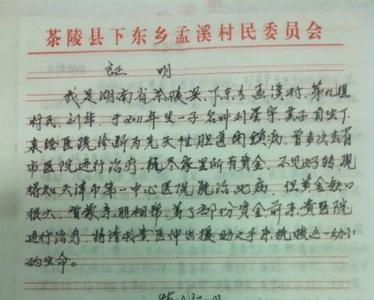 茶陵县下东乡孟溪村民委员会
证 明
我是湖南省茶陵县、下东乡孟溪村,第九组
村民,刘华,于2011年生一子名叫刘,其子自出下
来经医院诊断为先天性胆道闭锁病,曾多次去省
市医院进行治疗,概尽家里所有资金,不见好转现
得知天津市第一中心医院能治此病,但资金缺口
很大,亲朋相帮,筹了部份资金前来贵医院
进行治疗,特请求贵医院伸出援助之手来挽救这一幼小
的生命。